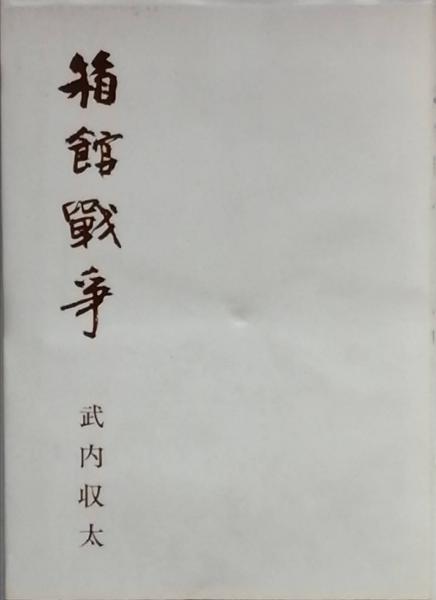 箱館戰爭
武内収太